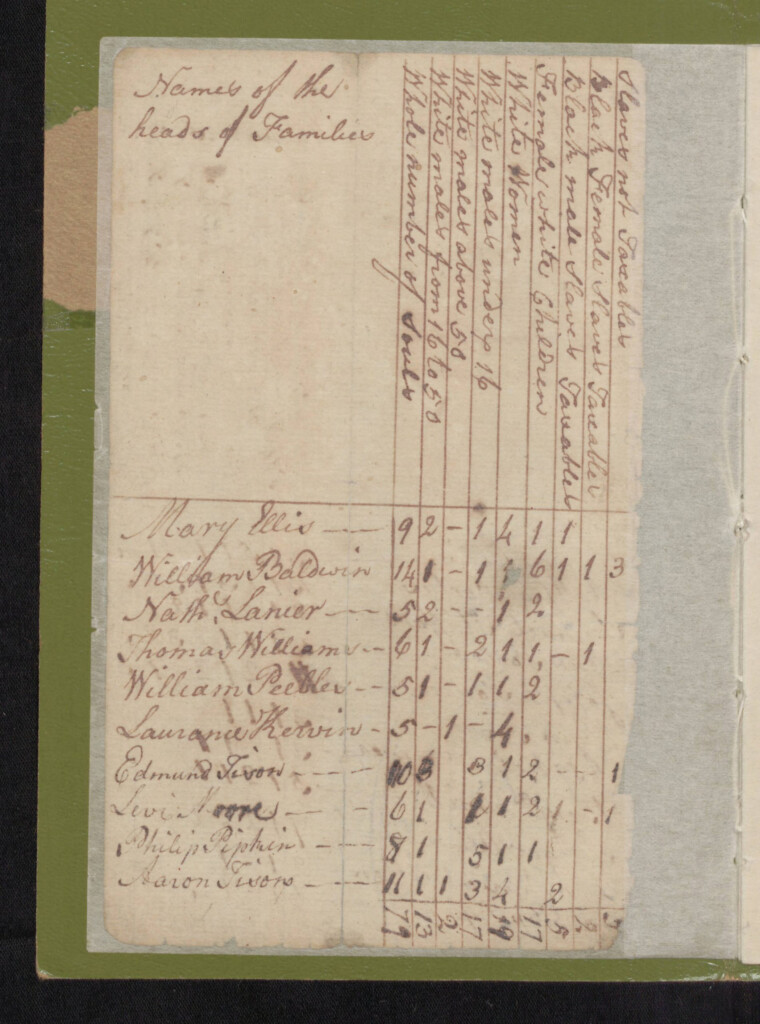 Names of the
heads of Families
Whole number of Souls
White males from 16 to 50
White males above 50
White males under 16
White Women
Female white Children
Black male Slaves Taxables
Black Female Slaves Taxables
Slaves not Taxables
Mary Ellis — — 9 2 - 1 4 1 1
William Baldwin 14 1 - 1 1 6 1 1 3
Nathl. Lanier — 5 2 - - 1 2
Thomas Williams - - 6 1 - 2 1 1 - 1
William Peebles - - 5 1 - 1 1 2
Laurance Kervin - 5 - 1 - 4
Edmund Tison - - - - 10 3 3 1 2 - - 1
Levi Moore - - - 6 1 1 1 2 1 - 1
Philip Pipkin - - - 8 1 5 1 1
Aaron Tison - - - 11 1 1 3 4 2
79 13 2 17 19 17 5 2 5